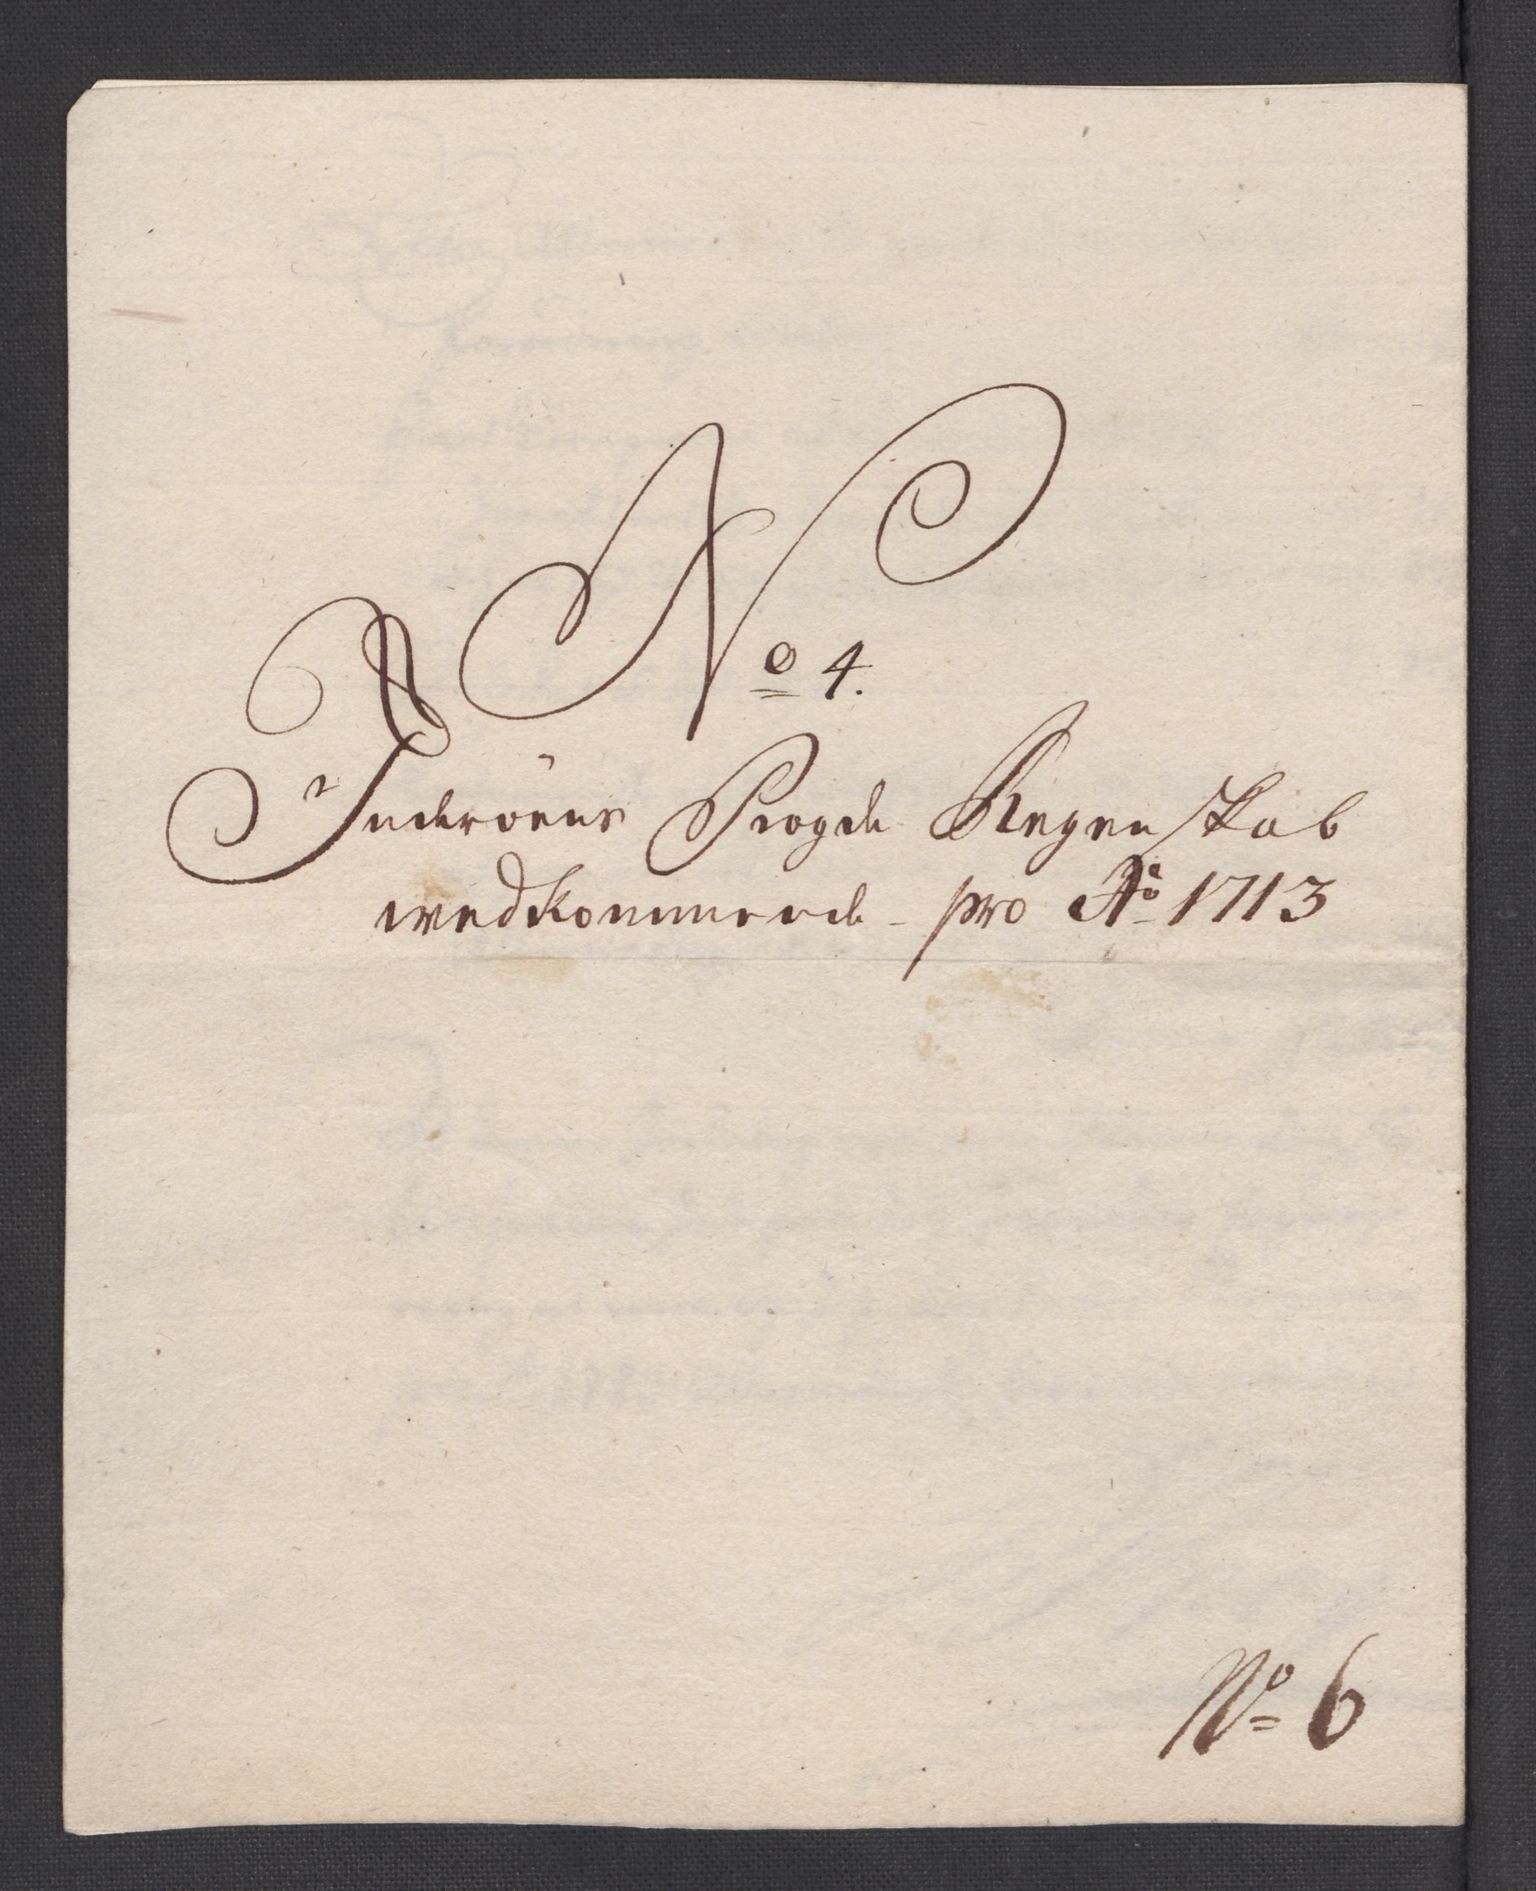 No 4.
Inderöens Fogde Regenskab
wedkommende pro Ao 1713
No 6